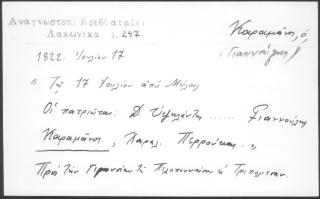 Αναγνωστοπ. Κρεββατάδες
Λακωνικά 1. 247
Καραμάνη, ὁ,
(Γιαννούλης)
1822. Ἰουνίου 17
" Τῇ 17 Ἰουνίου ἀπό Μύλους
Οἱ πατριῶται: Δ. Ὑψηλάντης ...... Γιαννούλης
Καραμάνη, Χαραλ. Περρούκας. "
Πρός τήν Γερουσίαν τῆς Πελοποννήσου εἰς Τριπολιτσάν.